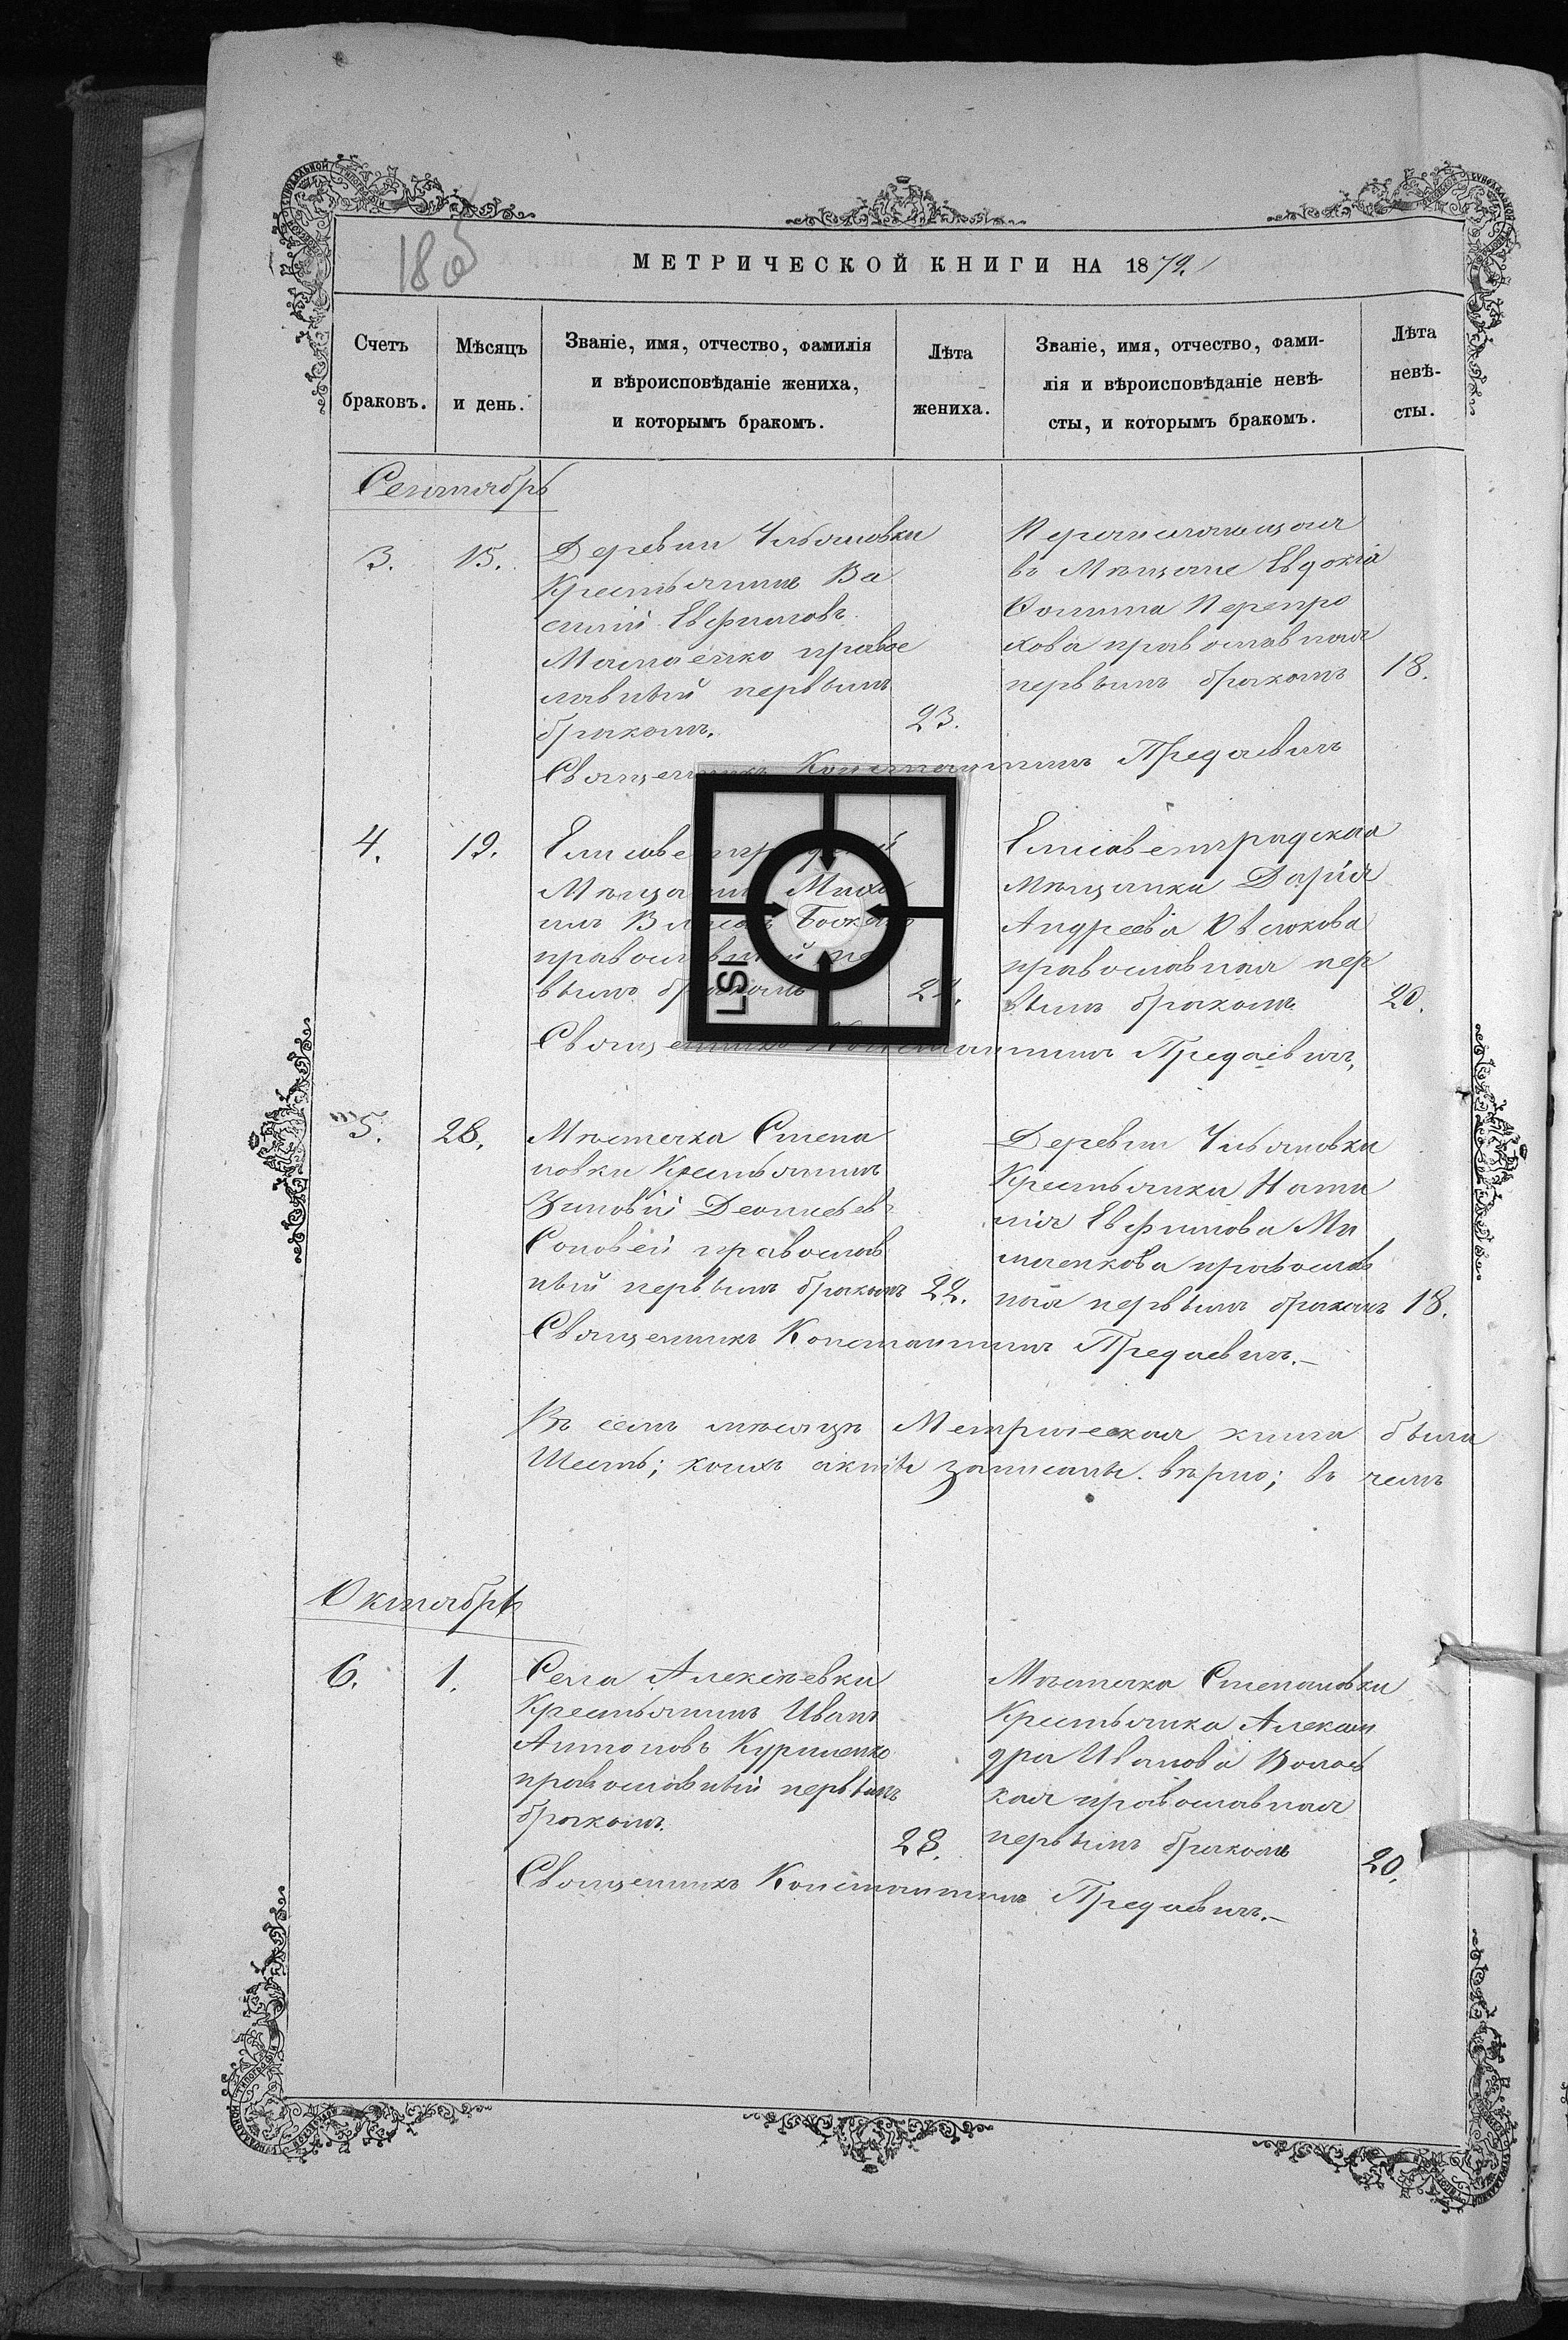 186
МЕТРИЧЕСКОЙ КНИГИ НА 1872
Счетъ браковъ.
Мѣсяцъ и день.
Званіе, имя, отчество, фамилія
и вѣроисповѣданіе жениха,
и которымъ бракомъ.
Лѣта жениха.
Званіе, имя, отчество, фами-
лія и вѣроисповѣданіе невѣ-
сты, и которымъ бракомъ.
Лѣта
невѣ-
сты.
Сентябрь
3. 15.
Деревни Ульяновки
Крестьянинъ Ва
силій Евфимовъ
правос
лавный первымъ
бракомъ. 23.
въ Мѣщане Евдокія
Фомина
хова православная
первымъ бракомъ 18.
Священникъ Константинъ Предаевичъ
4. 19.
Елисаветградскій
Мѣщанинъ Миха
илъ
православный пер
вымъ бракомъ
Елисаветградская
Мѣщанка Дарія
Андреева
православная пер
вымъ бракомъ 20.
Священникъ Константинъ Предаевичъ,
5. 28.
Мѣстечка Степа
новки Крестьянинъ
Зиновій Леонтьевъ
Соловей православ
ный первымъ бракомъ 22.
Деревни Ульяновки
Крестьянка Ната
лія Евфимова
православ
ная первымъ бракомъ 18.
Священникъ Константинъ Предаевичъ.—
Въ семъ мѣсяцѣ Метрическая книга была
коихъ акты записаны вѣрно; въ чемъ
Октябрь
6. 1.
Села Алексѣевки
Крестьянинъ Иванъ
Антоновъ
православный первымъ
бракомъ. 28.
Мѣстечка Степановки
Крестьянка Алексан
дра Иванова
кая православная
первымъ бракомъ 20.
Священникъ Константинъ Предаевичъ.—
LSI